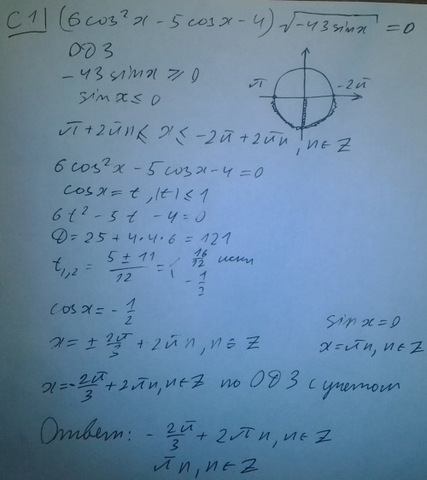 C1 (6cos²x - 5cosx - 4) √-43sinx = 0
ОДЗ
-43sinx ≥ 0
sinx ≤ 0
π -2π
π + 2πn ≤ x ≤ -2π + 2πn, n∈Z
6cos²x - 5cosx - 4 = 0
cosx = t, |t| ≤ 1
6t² - 5t - 4 = 0
D = 25 + 4·4·6 = 121
t₁,₂ = (5 ± 11)/12 = ⟨ 16/12
-1/2
cosx = -1/2
sinx = 0
x = ± 2π/3 + 2πn, n∈Z
x = πn, n∈Z
x = -2π/3 + 2πn, n∈Z по ОДЗ с учетом
Ответ: - 2π/3 + 2πn, n∈Z
πn, n∈Z